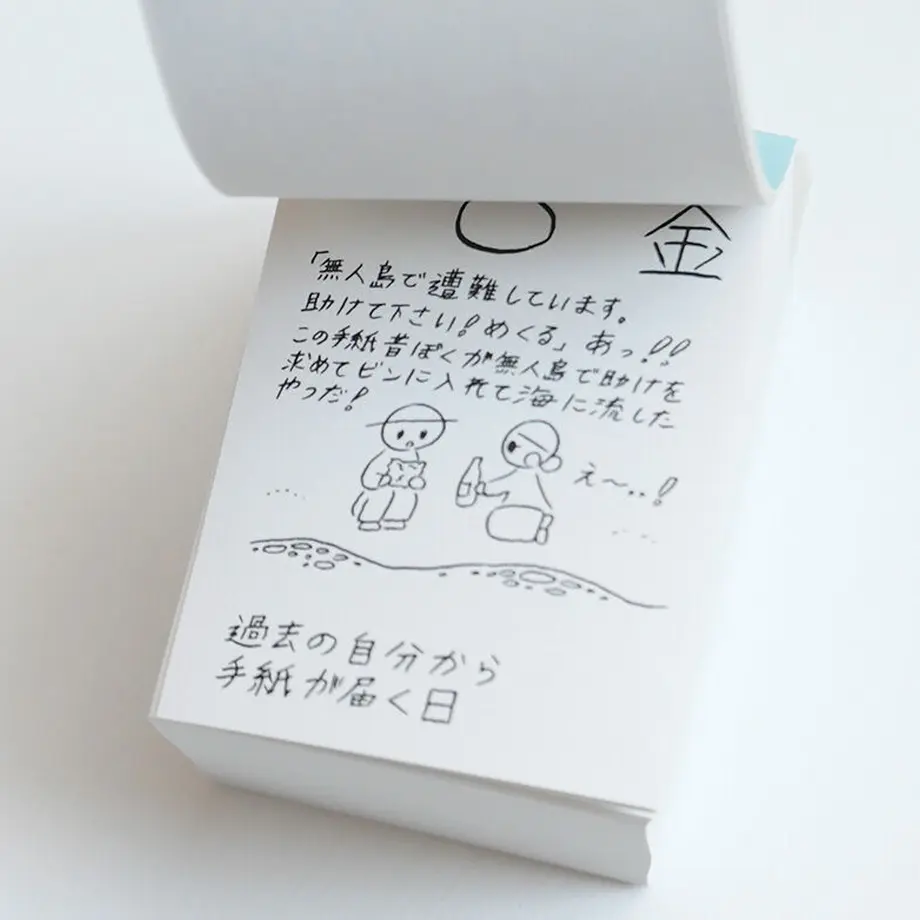 金
「無人島で遭難しています。
助けて下さい!めくる」あっ!!
この手紙昔ぼくが無人島で助けを
求めてビンに入れて海に流した
やつだ!
え〜..!
過去の自分から
手紙が届く日